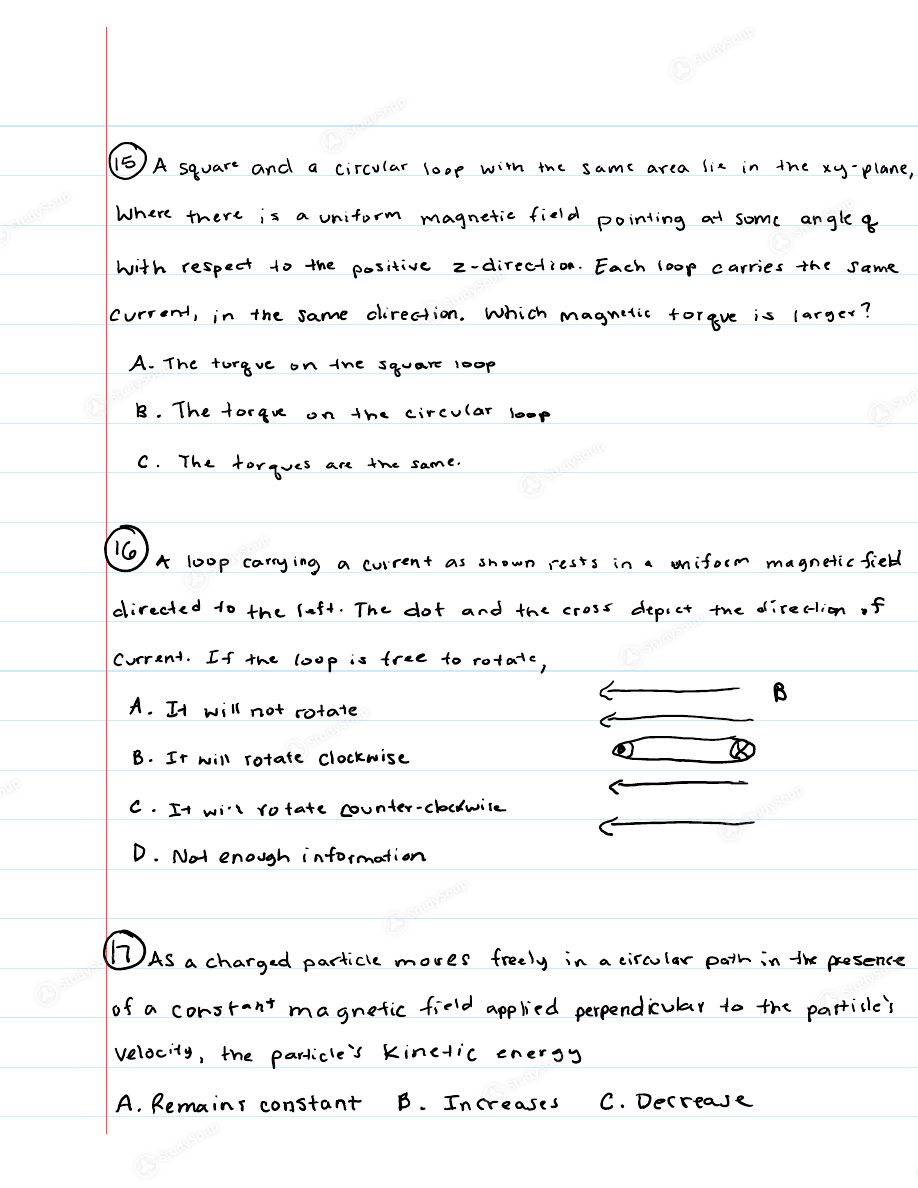 15 A square and a circular loop with the same area lie in the xy-plane,
Where there is a uniform magnetic field pointing at some angle q
with respect to the positive z-direction. Each loop carries the same
current, in the same direction. Which magnetic torque is larger?
A. The torque on the square loop
B. The torque on the circular loop
C. The torques are the same.
16 A loop carrying a current as shown rests in a uniform magnetic field
directed to the left. The dot and the cross depict the direction of
current. If the loop is free to rotate,
A. It will not rotate
B
B. It will rotate clockwise
C. It will rotate counter-clockwise
D. Not enough information
17 As a charged particle moves freely in a circular path in the presence
of a constant magnetic field applied perpendicular to the particle's
velocity, the particle's kinetic energy
A. Remains constant B. Increases C. Decrease
StudySoup